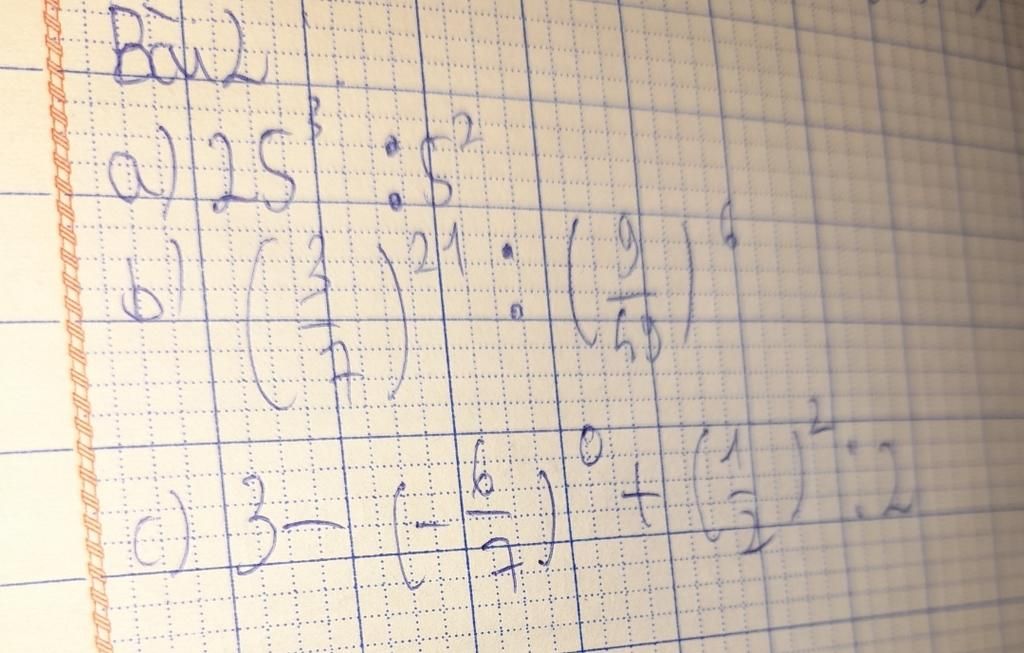 Bài 2
a) 25³ : 5²
b) (3/7)²¹ : (9/49)⁶
c) 3 - (-6/7)⁰ + (1/2)² : 2